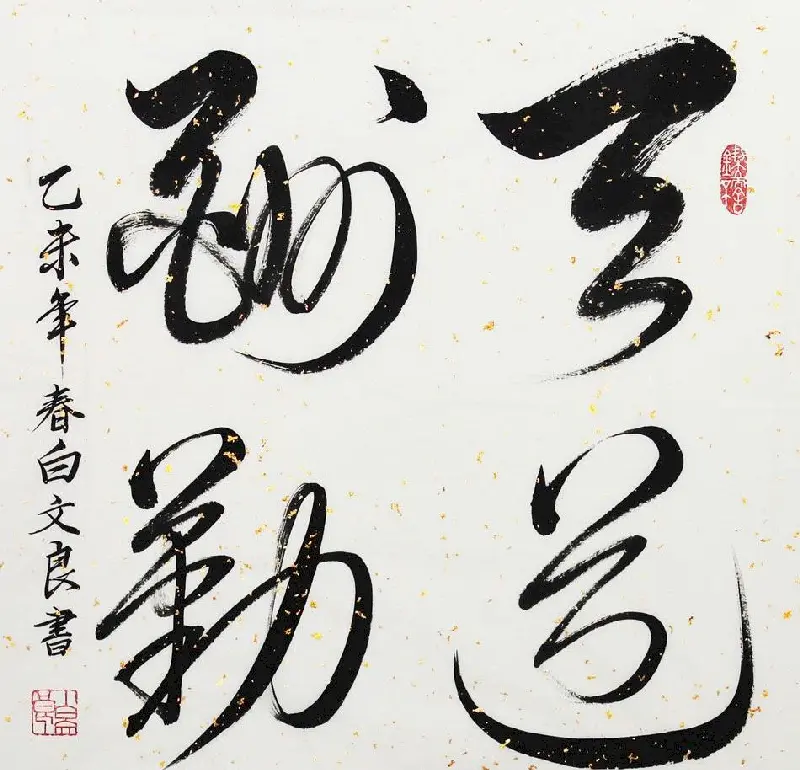 天道
酬勤
乙未年春白文良書